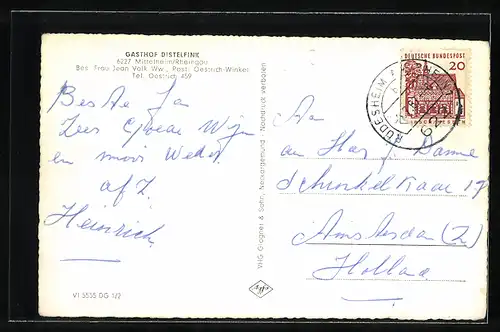 GASTHOF DISTELFINK
6227 Mittelheim/Rheingau
Bes. Frau Jean Volk Ww., Post: Oestrich-Winkel
Tel. Oestrich 459
Beste Jan
Zeer Goede Wijn
en mooi Weder
Heinrich
VI 3535 DG 1/2
VHG Glogner & Sohn, Neckargemünd · Nachdruck verboten
Agfa
DEUTSCHE BUNDESPOST
20
RÜDESHEIM
An
Damme
Amsterdam (Z)
Holland